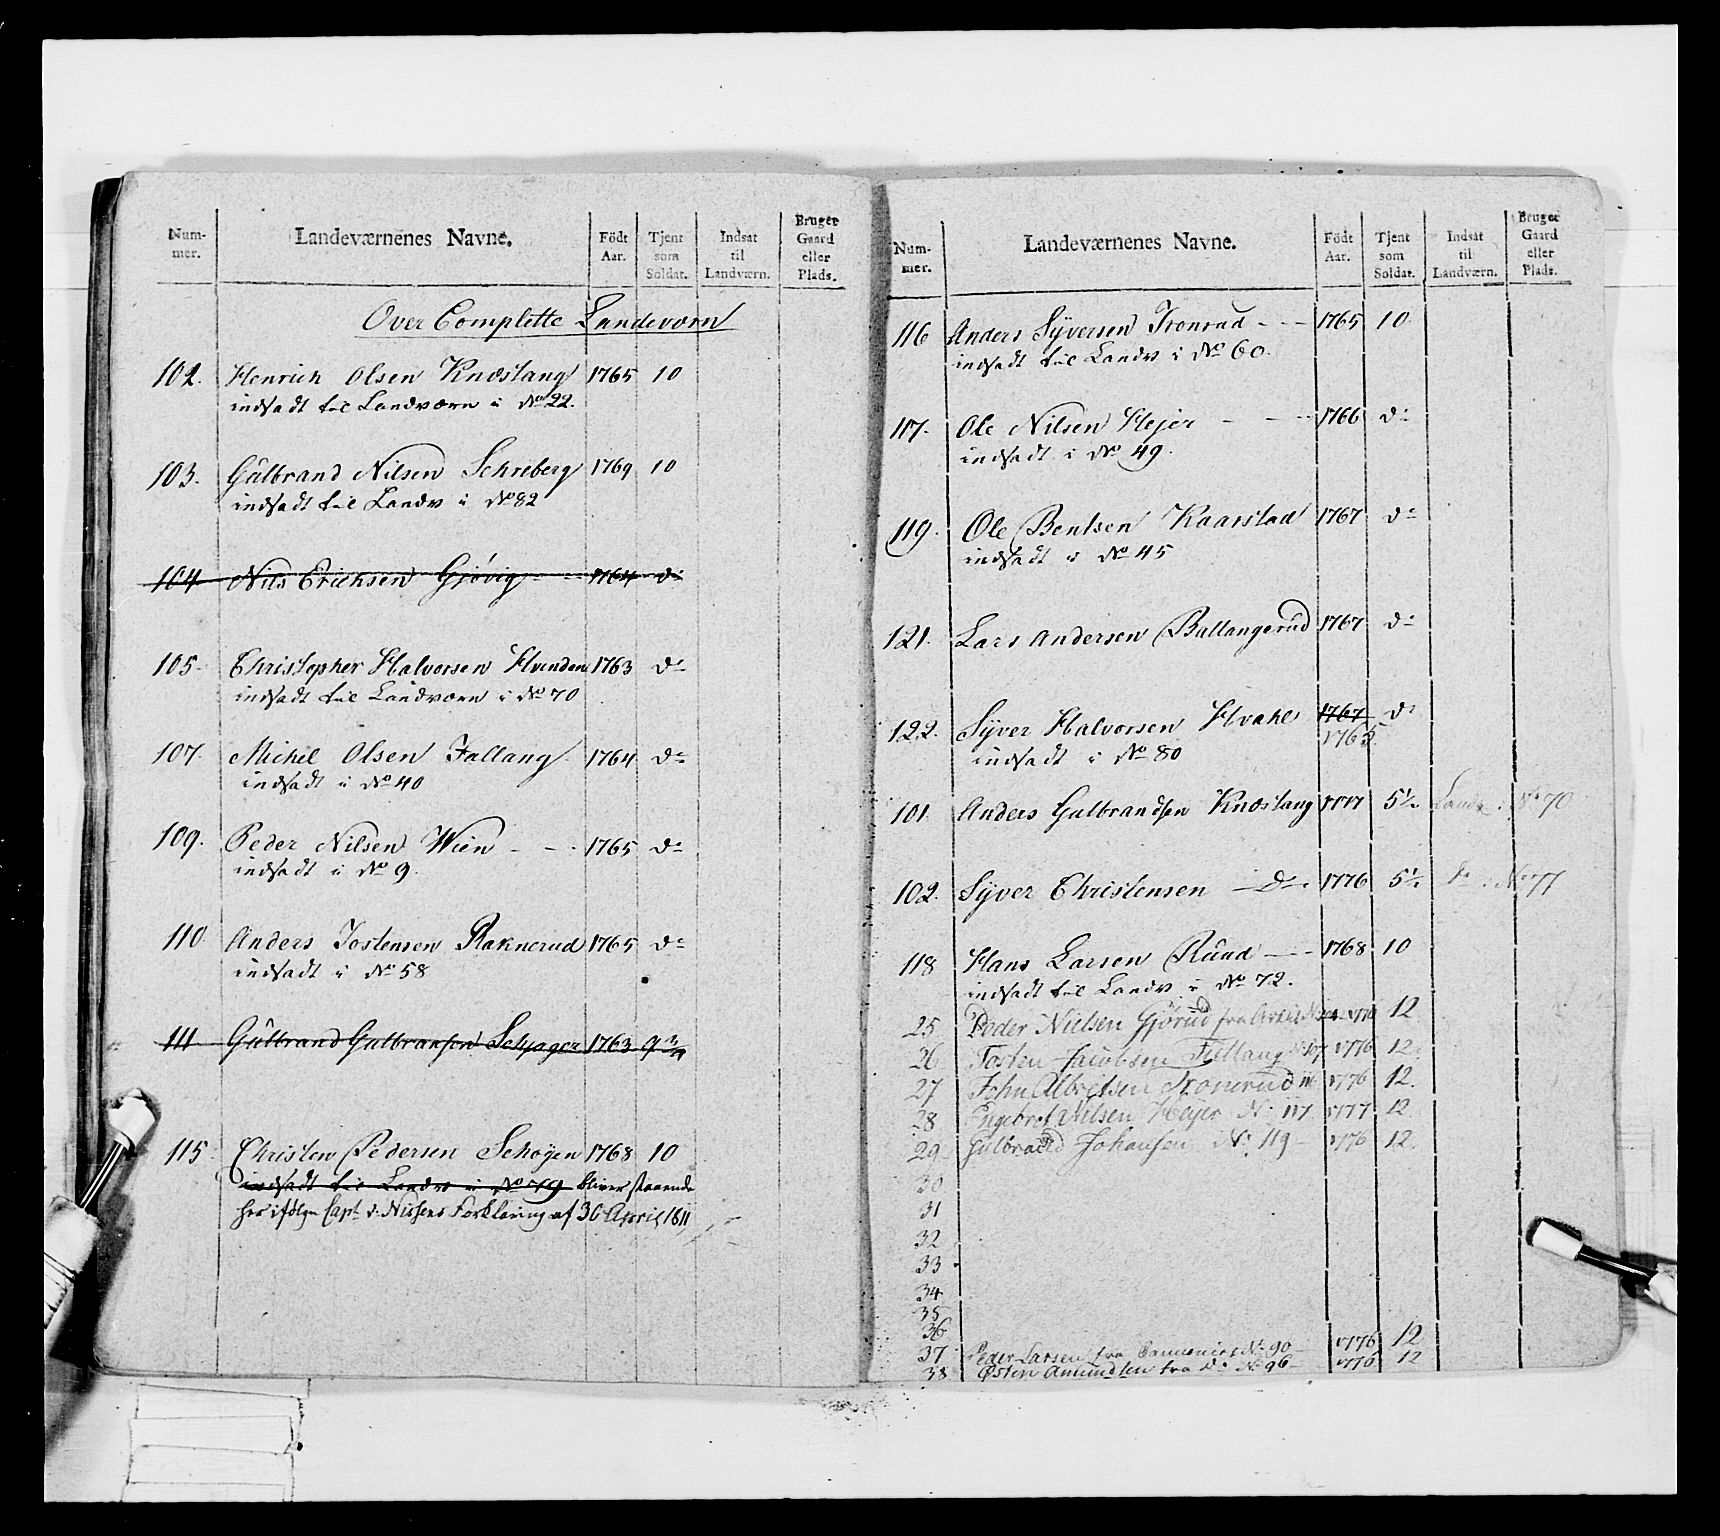 Num-mer. Landeværnenes Navne. Födt Aar. Tjent som Soldat. Indsat til Landværn. Bruger Gaard eller Plads.
Over Complette Landeværn
102. Henrich Olsen Knæstang 1765 10
indsadt til Landværn i No 22.
103. Gulbrand Nilsen Schreberg 1769 10
indsadt til Landv i No 82
104 Nils Erichsen Gjövig 1764 do
105. Christopher Halvorsen Hvinden 1763 do
indsadt til Landværn i No 70
107. Michel Olsen Fallang 1764 do
indsadt i No 40
109. Peder Nilsen Wien 1765 do
indsadt i No 9.
110 Anders Jostensen Raknerud 1765 do
indsadt i No 58
111 Gulbrand Gulbransen Schjager 1763 9 3/4
115. Christen Pedersen Schoyen 1768 10
indsadt til Landv i No 79 bliver staaende
her ifölge Capt v. Nissens Forklaring af 30 April 1811
Num-mer. Landeværnenes Navne. Födt Aar. Tjent som Soldat. Indsat til Landværn. Bruger Gaard eller Plads.
116 Anders Syversen Tronrud 1765 10
indsadt til Landv i No 60.
117. Ole Nilsen Hejer 1766 do
indsadt i No 49.
119. Ole Bentsen Kaarstad 1767 do
indsadt i No 45
121. Lars Andersen Ballangrud 1767 do
122. Syver Halvorsen Hvahl 1767 do
1763.
indsadt i No 80
101. Anders Gulbrandsen Knæstang 1777 5 1/2 Landv. i No 70
102. Syver Christensen do 1776 5 1/2 do i No 77
118 Hans Larsen Ruud 1768 10
indsadt til Landv i No 72.
25 Peder Nielsen Gjörud fra 1776 12
26 Tosten Jacobsen Fallang No 107 1776 12.
27 John Albretsen Tronerud 1776 12.
28 Engebret Nilsen Heyer No 117 1777 12
29 Gulbrand Johansen No 119 1776 12.
30
31
32
33
34
35
36
37 Peder Larsen fra No 90 1776 12
38 Østen Amundsen fra do No 96 1776 12